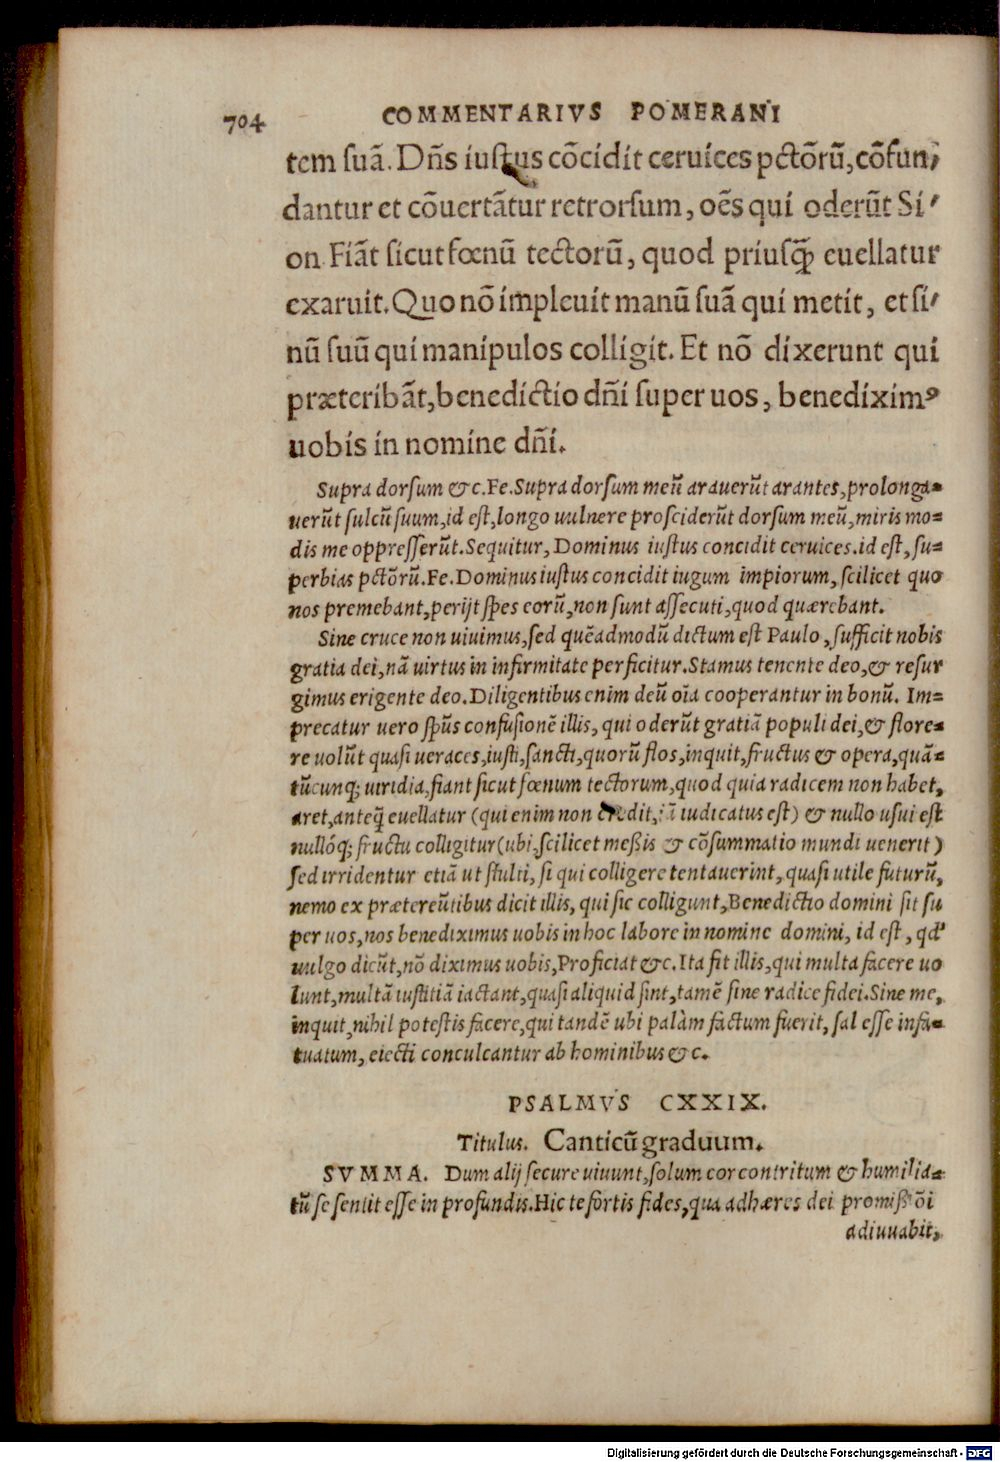 704 COMMENTARIVS POMERANI
tem suā. Dñs iustus cōcidit ceruices pctōrū, cōfun-
dantur et cōuertātur retrorsum, oēs qui oderūt Si-
on. Fiāt sicut fœnū tectorū, quod priusq̄ euellatur
exaruit. Quo nō impleuit manū suā qui metit, et si-
nū suū qui manipulos colligit. Et nō dixerunt qui
præteribāt, benedictio dñi super uos, benediximꝰ
uobis in nomine dñi.
Supra dorsum &c. Fe. Supra dorsum meū arauerūt arantes, prolonga-
uerūt sulcū suum, id est, longo uulnere prosciderūt dorsum meū, miris mo-
dis me oppresserūt. Sequitur, Dominus iustus concidit ceruices. id est, su-
perbias pctōrū. Fe. Dominus iustus concidit iugum impiorum, scilicet quo
nos premebant, perijt spes eorū, non sunt assecuti, quod quærebant.
Sine cruce non uiuimus, sed quēadmodū dictum est Paulo, sufficit nobis
gratia dei, nā uirtus in infirmitate perficitur. Stamus tenente deo, & resur
gimus erigente deo. Diligentibus enim deū oīa cooperantur in bonū. Im-
precatur uero spūs confusionē illis, qui oderūt gratiā populi dei, & flore-
re uolūt quasi ueraces, iusti, sancti, quorū flos, inquit, fructus & opera, quā-
tūcunq; uiridia, fiant sicut fœnum tectorum, quod quia radicem non habet,
aret, anteq̄ euellatur (qui enim non credit, iā iudicatus est) & nullo usui est
nullóq; fructu colligitur (ubi, scilicet meßis & cōsummatio mundi uenerit)
sed irridentur etiā ut stulti, si qui colligere tentauerint, quasi utile futurū,
nemo ex prætereūtibus dicit illis, qui sic colligunt, Benedictio domini sit su
per uos, nos benediximus uobis in hoc labore in nomine domini, id est, qd'
uulgo dicūt, nō diximus uobis, Proficiat &c. Ita fit illis, qui multa facere uo
lunt, multā iustitiā iactant, quasi aliquid sint, tamē sine radice fidei. Sine me,
inquit, nihil potestis facere, qui tandē ubi palàm factum fuerit, sal esse infa-
tuatum, eiecti conculcantur ab hominibus &c.
PSALMVS CXXIX.
Titulus. Canticū graduum.
SVMMA. Dum alij secure uiuunt, solum cor contritum & humilia-
tū se sentit esse in profundis. Hic te fortis fides, qua adhæres dei promißōi
adiuuabit,
Digitalisierung gefördert durch die Deutsche Forschungsgemeinschaft - DFG